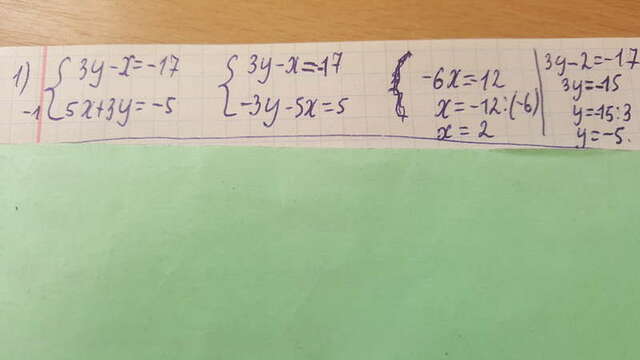 1) { 3y-x=-17
-1 { 5x+3y=-5
{ 3y-x=-17
{ -3y-5x=5
-6x=-12
x=-12:(-6)
x=2
3y-2=-17
3y=-15
y=-15:3
y=-5.